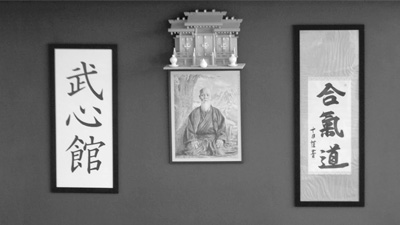 武心館
合氣道